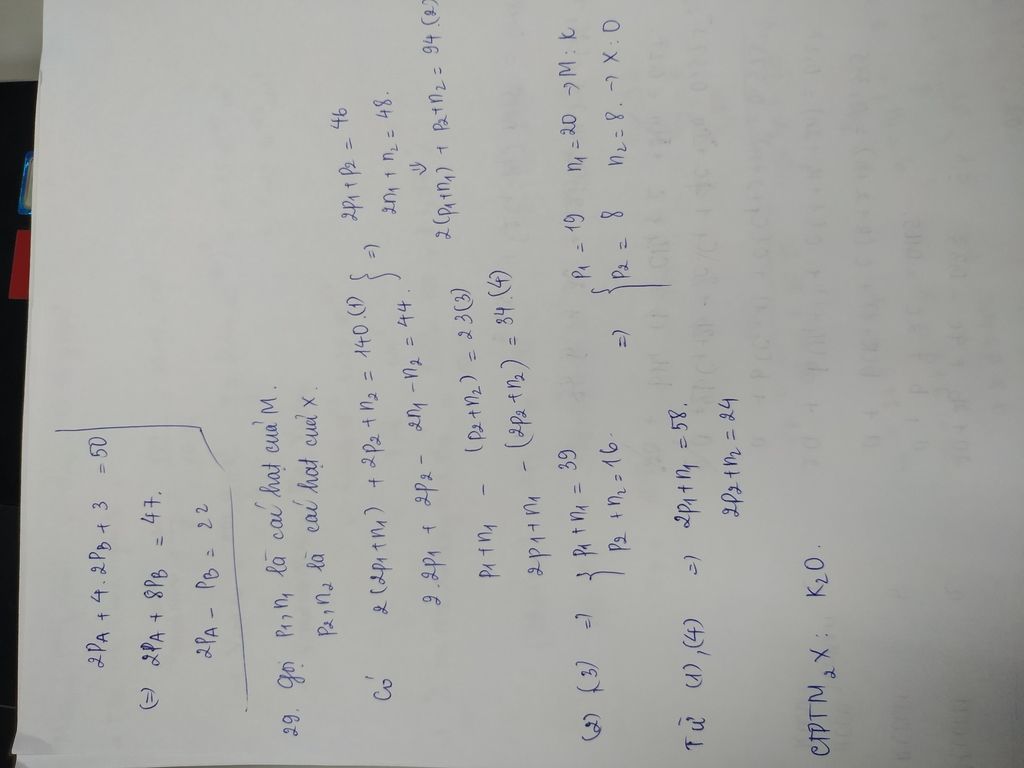 2PA + 4.2PB + 3 = 50
(=) 2PA + 8PB = 47.
2PA - PB = 22
29. Gọi P1, n1 là các hạt của M.
P2, n2 là các hạt của X.
Có 2(2p1+n1) + 2p2 + n2 = 140.(1) } =) 2p1 + p2 = 46
2.2p1 + 2p2 - 2n1 - n2 = 44. 2n1 + n2 = 48.
⇓
2(p1+n1) + p2+n2 = 94.(2)
p1+n1 - (p2+n2) = 23(3)
2p1+n1 - (2p2+n2) = 34.(4)
(2) (3) =) { p1+n1 = 39
p2+n2 = 16.
=) { p1 = 19 n1 = 20 → M : K
p2 = 8 n2 = 8. → X : O
Từ (1), (4) =) 2p1+n1 = 58.
2p2+n2 = 24
CTPT M2X : K2O.